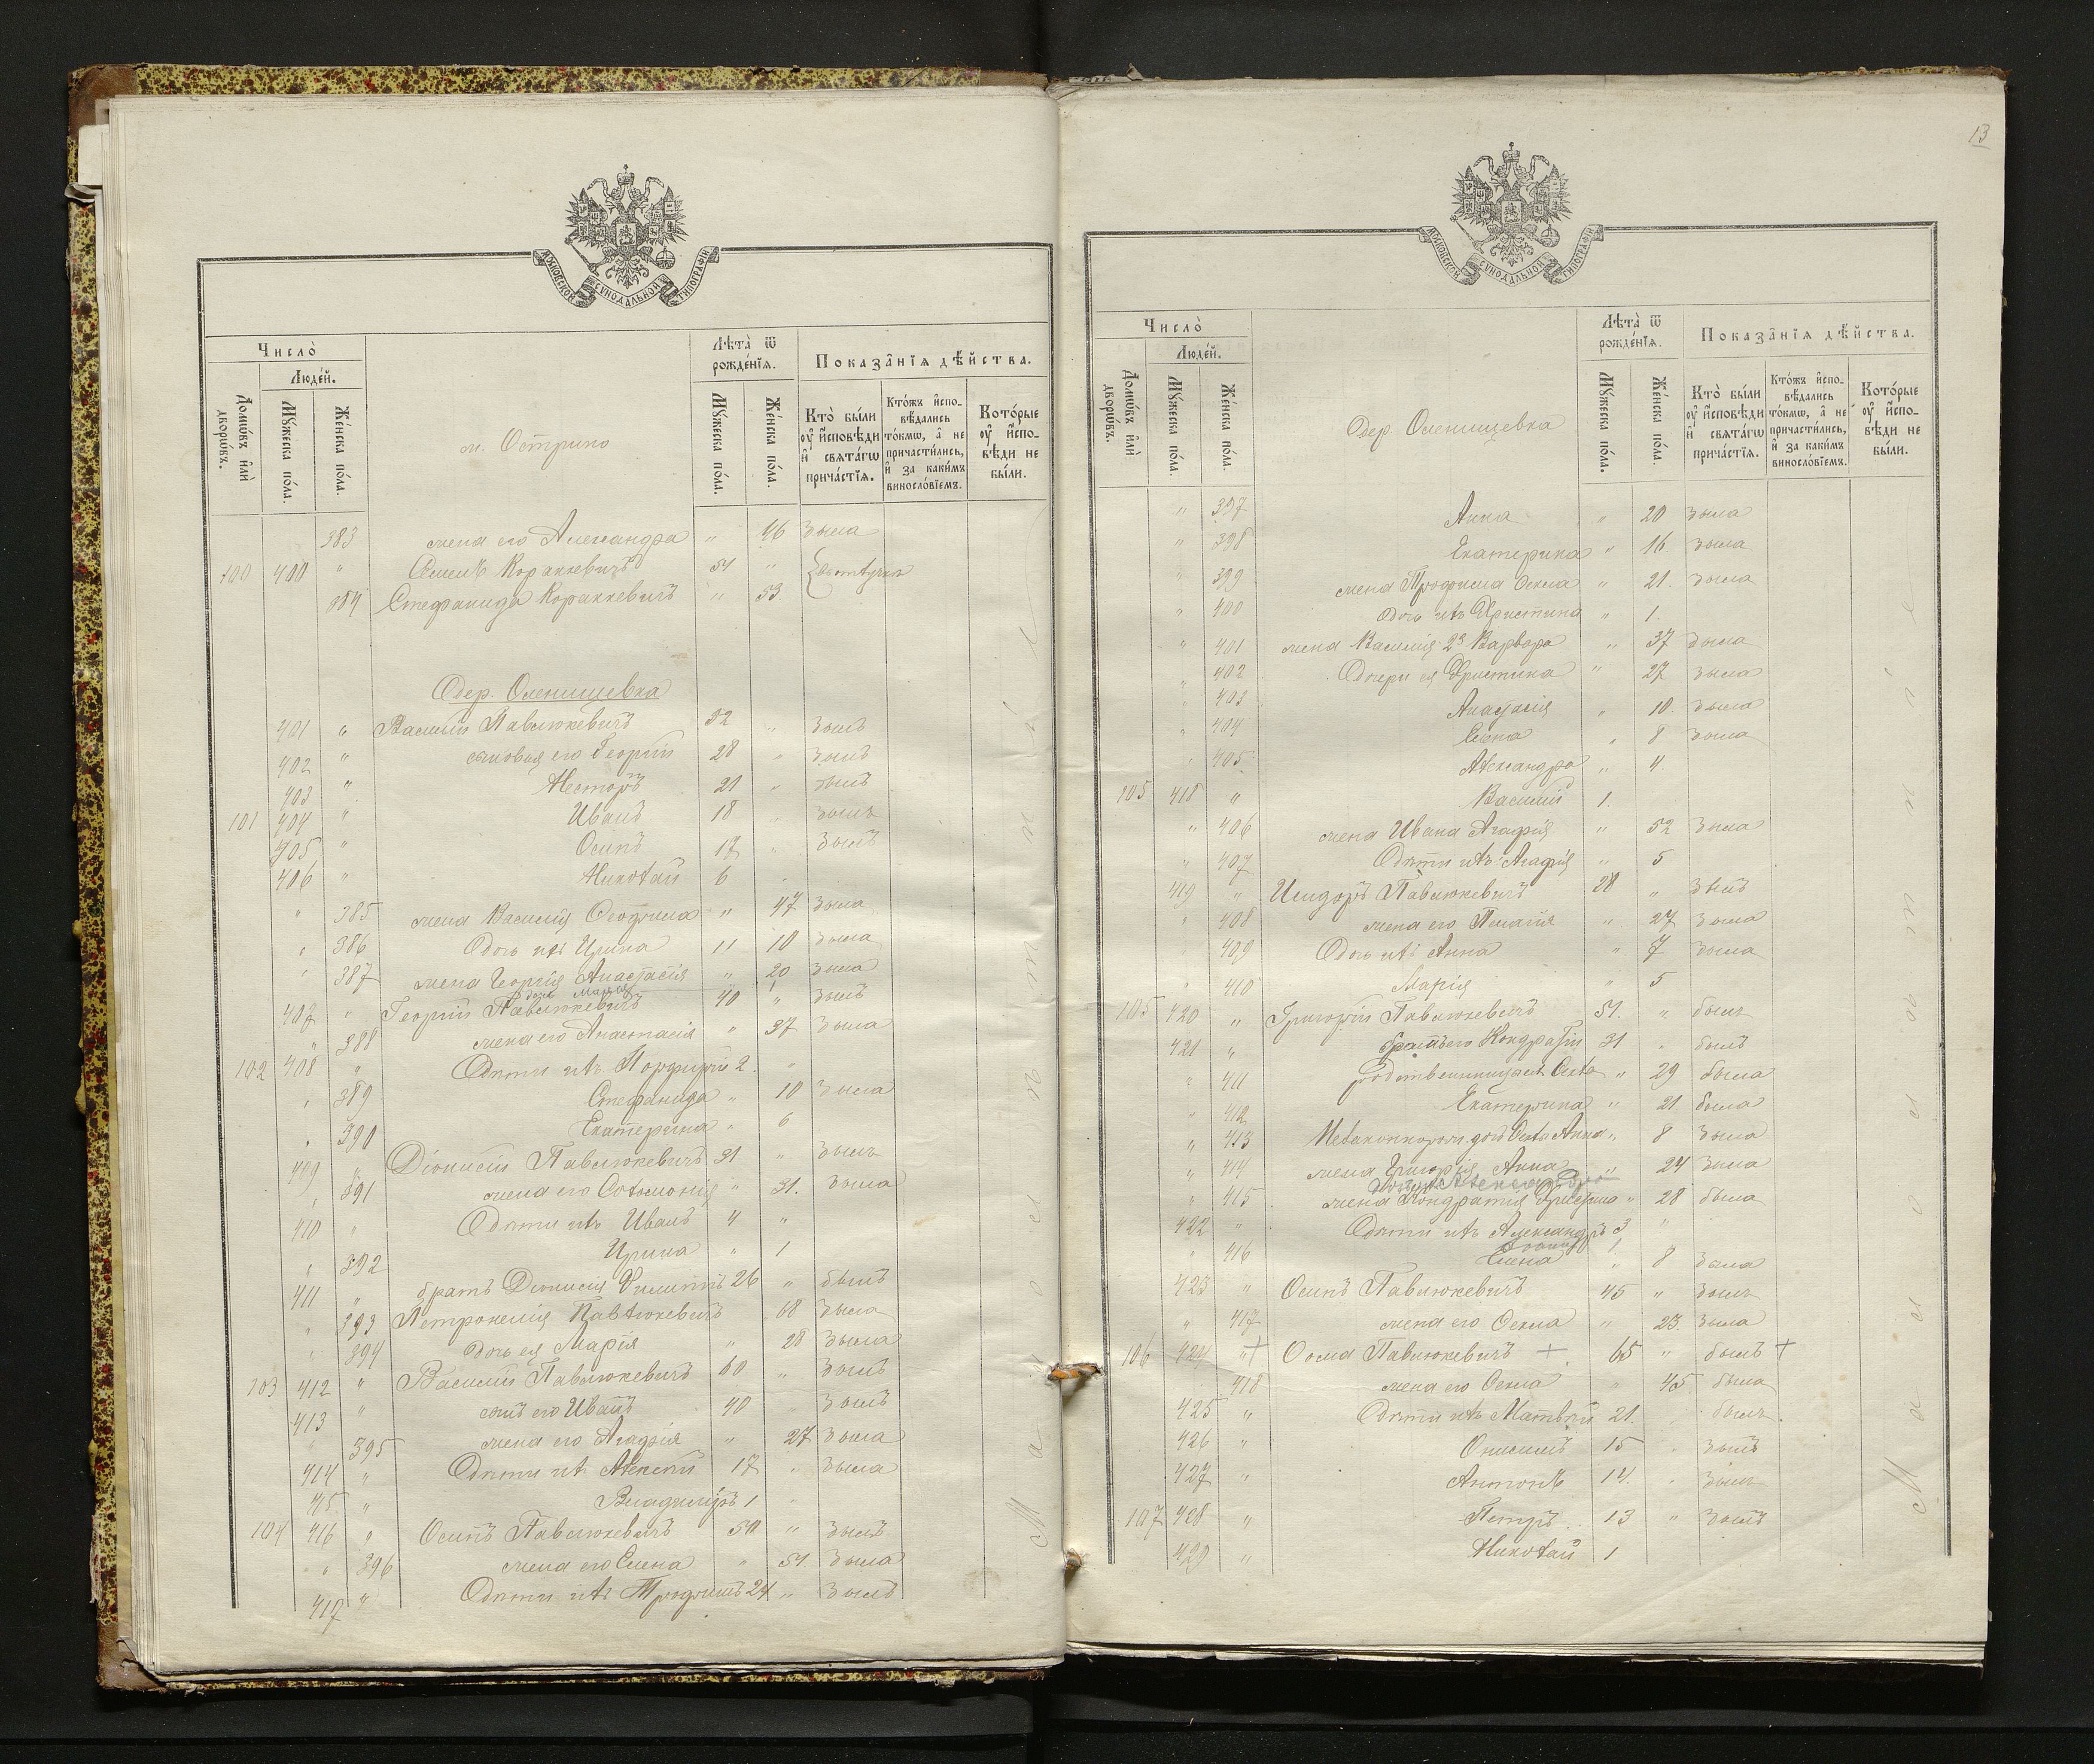 МОСКОВСКОЙ СѴНОДАЛЬНОЙ ТИПОГРАФІИ
Число̀
Люде́й.
Домѡ́въ и҆лѝ дворѡ́въ.
Мꙋ́жеска по́ла.
Же́нска по́ла.
м. Острино
Лѣта̀ ѿ рожде́нїѧ.
Мꙋ́жеска по́ла.
Же́нска по́ла.
Показа̑нїѧ дѣ́йства.
Кто̀ бы́ли оу҆ и҆́сповѣди и҆ свѧта́гѡ прича́стїѧ.
Кто́жъ и҆спо-вѣ́дались то́кмѡ, а҆ не причасти́лись, и҆ за каки́мъ виносло́вїемъ.
Кото́рые оу҆ и҆́спо-вѣди не бы́ли.
383 жена его Александра " 46 была
100 400 " Семенъ Коракевичъ 54 "
384 Стефанида Коракевичъ " 53.
Дер. Оленишевка
401 " Василій Павлюкевичъ 52 " былъ
402 " сыновья его Георгій 28 " былъ
403 " Несторъ 21 " былъ
101 404 " Иванъ 18 " былъ
405 " Осипъ 17 " былъ
406 " Николай 6
" 385 жена Василія " 47 была
" 386 Дочь ихъ Ирина 11 10 была
" 387 жена Георгія Анастасія " 20 была
дочь Марія 1
407 " Георгій Павлюкевичъ 40 " былъ
" 388 жена его Анастасія " 37 была
102 408 " Дѣти ихъ Порфирій 2. "
" 389 Стефанида " 10 была
" 390 Екатерина " 6
409 " Діонисій Павлюкевичъ 31 " былъ
" 391 жена его Соломонія " 31. была
410 " Дѣти ихъ Иванъ 4 "
" 392 Ирина " 1
411 " братъ Діонисія Филиппъ 26 " былъ
" 393 Петронелія Павлюкевичъ 68 была
" 394 дочь ея Марія " 28 была
103 412 " Василій Павлюкевичъ 60 " былъ
413 " сынъ его Иванъ 40 былъ
" 395 жена его Агафія " 27 была
414 " Дѣти ихъ Алексѣй 17 " была
415 " Владиміръ 1 "
104 416 " Осипъ Павлюкевичъ 50 " былъ
" 396 жена его Елена " 51. была
417 " Дѣти ихъ Трофимъ 24 " былъ
13
МОСКОВСКОЙ СѴНОДАЛЬНОЙ ТИПОГРАФІИ
Число̀
Люде́й.
Домѡ́въ и҆лѝ дворѡ́въ.
Мꙋ́жеска по́ла.
Же́нска по́ла.
Дер. Оленищевка
Лѣта̀ ѿ рожде́нїѧ.
Мꙋ́жеска по́ла.
Же́нска по́ла.
Показа̑нїѧ дѣ́йства.
Кто̀ бы́ли оу҆ и҆́сповѣди и҆ свѧта́гѡ прича́стїѧ.
Кто́жъ и҆спо-вѣ́дались то́кмѡ, а҆ не причасти́лись, и҆ за каки́мъ виносло́вїемъ.
Кото́рые оу҆ и҆́спо-вѣди не бы́ли.
" 397 Анна " 20 была
" 398 Екатерина " 16. была
" 399 жена Трофима Фекла " 21. была
" 400 Дочь ихъ Христина " 1.
" 401 жена Василія 2й Варвара " 37 была
" 402 Дочери ея Христина " 27 была
403 Анастасія " 10. была
" 404 Елена " 8 была
" 405 Александра " 4.
105 418 " Василій 1.
" 406 жена Ивана Агафія " 52 была
" 407 Дѣти ихъ: Агафія " 5
419 " Исидоръ Павлюкевичъ 28 " былъ
" 408 жена его Пелагія " 27 была
409 Дочь ихъ Анна " 7 была
" 410 Марія " 5
105 420 " Григорій Павлюкевичъ 51. " былъ
421 " братъ его Кондратій 31 " былъ
" 411 29 была
412 Екатерина " 21 была
" 413 Анна " 8 была
" 414 жена Григорія Анна " 24 была
Александра
" 415 жена Кондратія " 28 была
422 " Дѣти ихъ Александръ 3 "
" 416 Елена " 8 была
423 " Осипъ Павлюкевичъ 45 " былъ
" 417 жена его Фекла " 23. была
106 424 "+ Фома Павлюкевичъ + 65 " былъ +
418 жена его Фекла " 45 была
425 " Дѣти ихъ Матвѣй 21. " былъ
426 " Онисимъ 15 " былъ
427 " Антонъ 14. " былъ
107 428 " Петръ 13 " былъ
429 " Николай 1